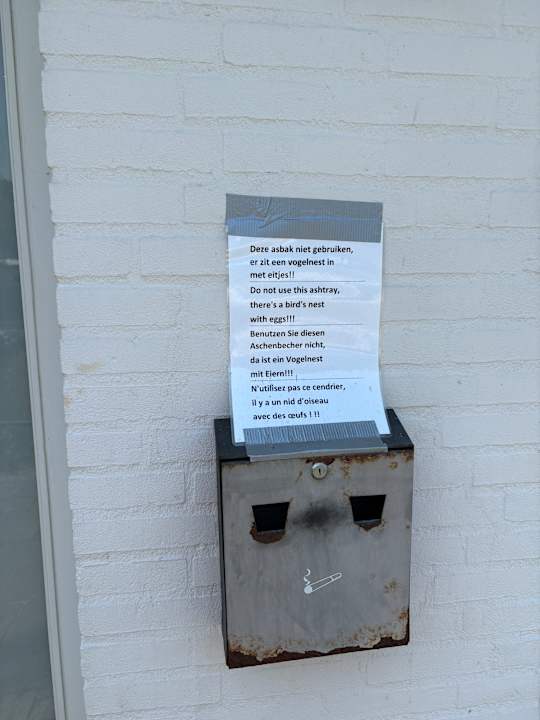 Deze asbak niet gebruiken,
er zit een vogelnest in
met eitjes!!
Do not use this ashtray,
there's a bird's nest
with eggs!!!
Benutzen Sie diesen
Aschenbecher nicht,
da ist ein Vogelnest
mit Eiern!!!
N'utilisez pas ce cendrier,
il y a un nid d'oiseau
avec des œufs ! !!